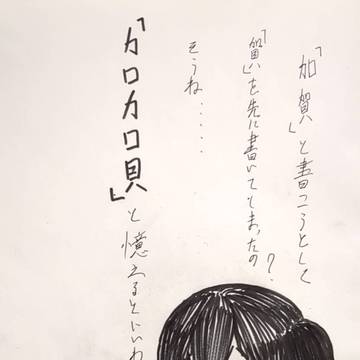 「加賀」と書こうとして
「賀」を先に書いてしまったの？
そうね……
「カロカロ貝」と憶えるといいわ